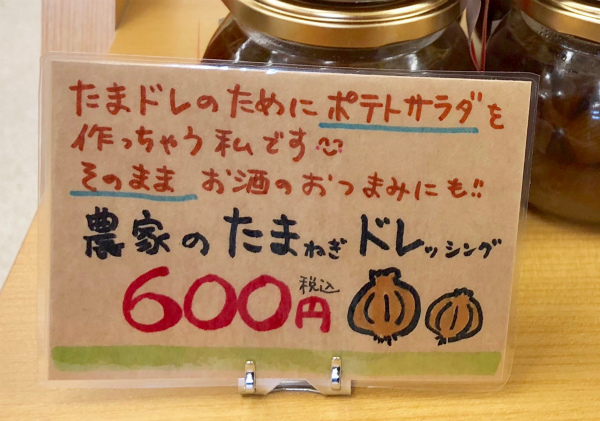 たまドレのためにポテトサラダを
作っちゃう私です
そのまま お酒のおつまみにも!!
農家のたまねぎドレッシング
600円 税込